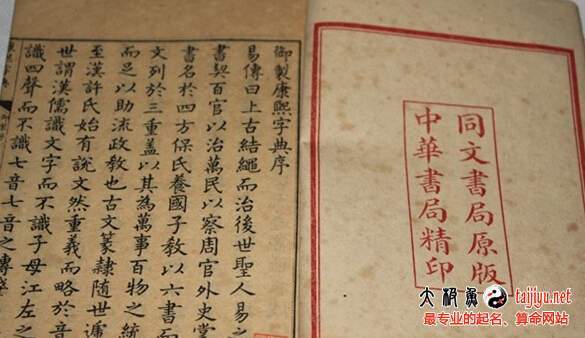 同文書局原版
中華書局精印
御製康熙字典序
易傳曰上古結繩而治後世聖人易之
書契百官以治萬民以察周官外史掌
書名於四方保氏養國子教以六書而
文列於三重蓋以其為萬事百物之統
而足以助流政教也古文篆隸隨世遞
至漢許氏始有說文然重義而略於音
世謂漢儒識文字而不識子母江左之
識四聲而不識七音七音之傳
taijiyu.net
最专业的起名、算命网站